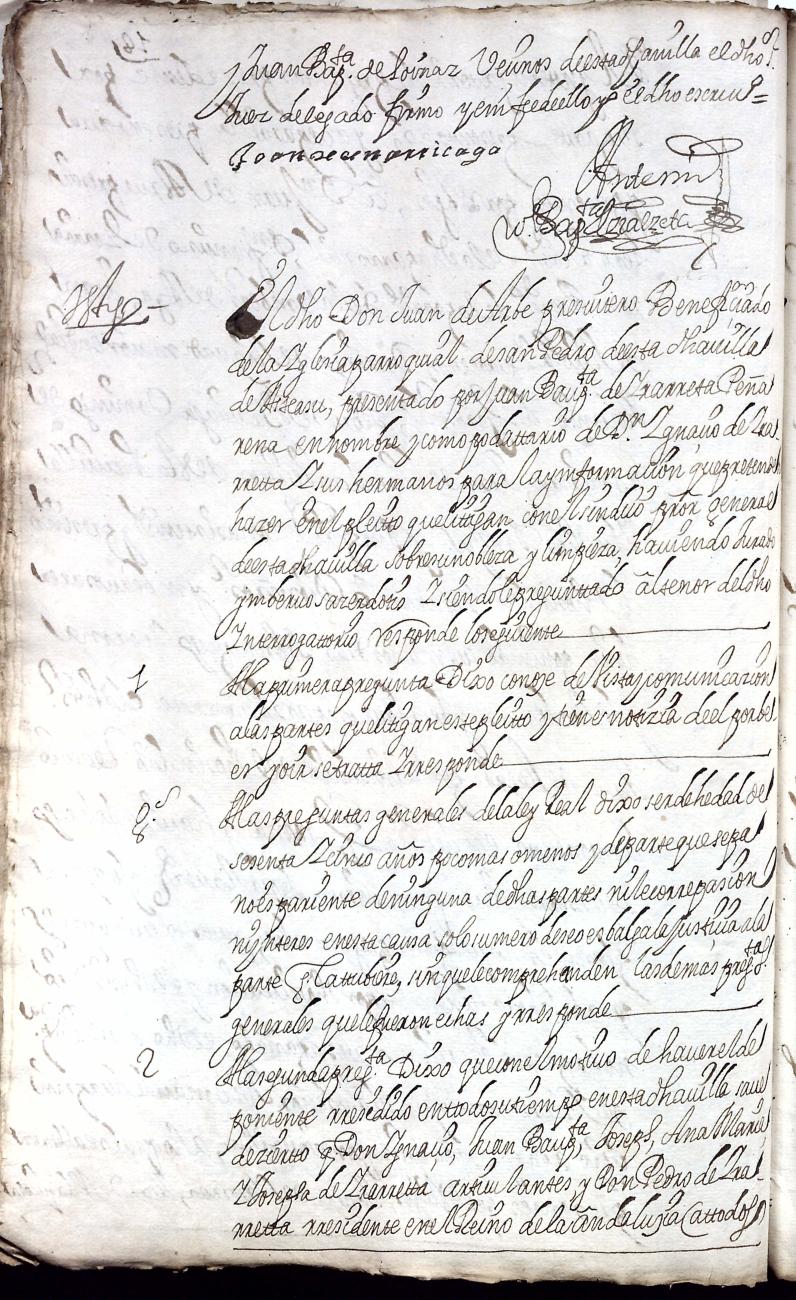 y Juan Bapta. de Loinaz Veçinos de esta dha villa el dho Sr.
Juez delegado firmo y en fe de ello yo el dho escriuo =
Joan de amorricaga
Antemi
Bapta Yzalzeta
Testigo
El dho Don Juan de Vrbe presuitero Beneficiado
de la Yglesia parroquial de san Pedro de esta dha villa
de Ataun, presentado por Juan Baupta. de Yrarreta Peña
rena en nombre y como podattario de Dn Ygnaçio de Yra-
rretta Y sus hermanos para la ynformaçion que pretende
hazer en el pleitto que litigan con el sindico pror general
de esta dha villa sobre su nobleza y limpieza, hauiendo Jurado
yn beruo sazerdotis Y siendole preguntado al tenor del dho
Ynterrogattorio responde lo seguiente
1 A la primera pregunta Dixo conoze de Vista y comunicazion
a las partes que litigan este pleitto y tiene notizia de el por ber
er y oir se tratta Y rresponde
gs A las preguntas generales de la ley Real dixo ser de hedad de
sesenta Y cinco años poco mas o menos y de parte que sepa
no es pariente de ninguna de dhas partes ni le corre pasion
ny ynteres en esta causa solo su mero deseo es balga la Justicia a la
parte q la ttubiere, sin que le comprehenden las demas pregtas.
generales que le fueron echas y rresponde
2 A la segunda pregta. Dixo que con el motiuo de hauer el de
poniente rresedido en ttodo su tiempo en esta dha villa saue
de zierto q Don Ygnaçio, Juan Baupta, Joseph, Ana Maria
Y Josepha de Yrarretta articulantes y Don Pedro de Yra-
rretta rresidente en el Reino de la Andaluzia Cattodos